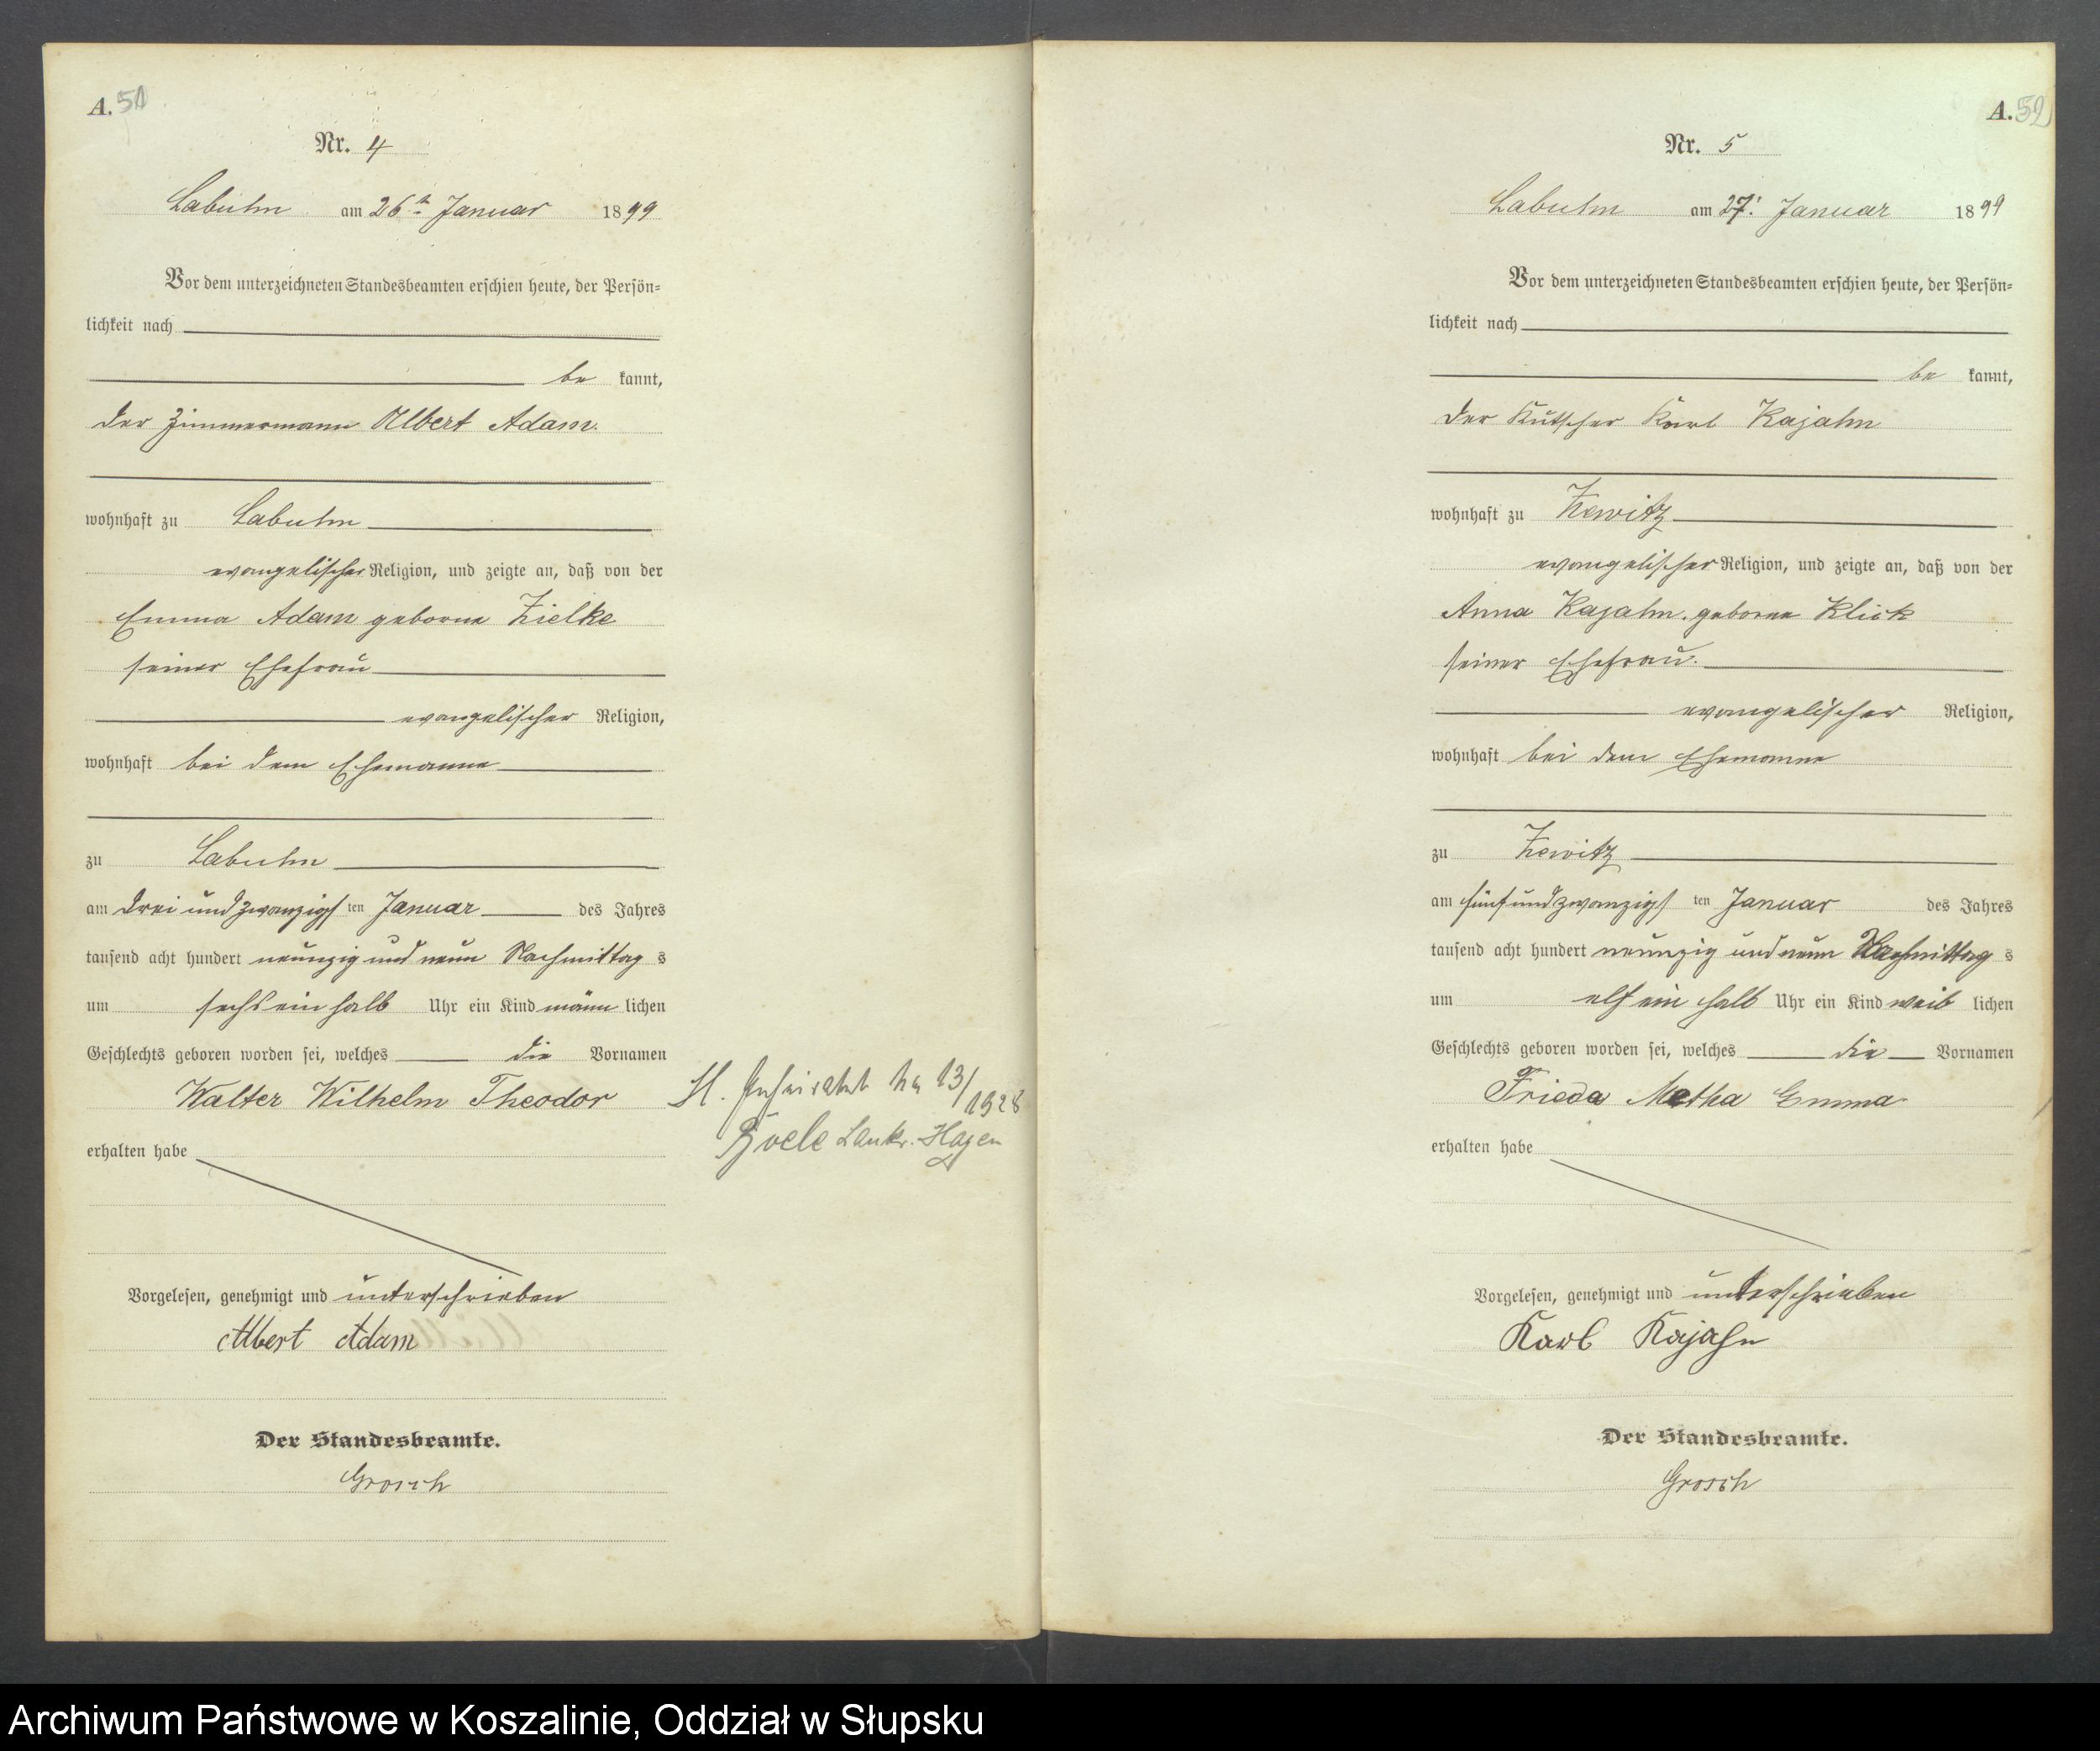 A. 51
Nr. 4
Labuhn am 26ten Januar 1899
Vor dem unterzeichneten Standesbeamten erschien heute, der Persön=
lichkeit nach
be kannt,
der Zimmermann Albert Adam.
wohnhaft zu Labuhn
evangelischer Religion, und zeigte an, daß von der
Emma Adam geborne Zielke
seiner Ehefrau
evangelischer Religion,
wohnhaft bei dem Ehemanne
zu Labuhn
am drei und zwanzigs ten Januar des Jahres
tausend acht hundert neunzig und neun Nachmittag s
um sechs ein halb Uhr ein Kind männ lichen
Geschlechts geboren worden sei, welches die Vornamen
Walter Wilhelm Theodor
erhalten habe
Vorgelesen, genehmigt und unterschrieben
Albert Adam
Der Standesbeamte.
Grosch
H. geheiratet No 13/
1928
Boele Landkr. Hagen
A. 52
Nr. 5
Labuhn am 27. Januar 1899
Vor dem unterzeichneten Standesbeamten erschien heute, der Persön=
lichkeit nach
be kannt,
der Kutscher Karl Kajahn
wohnhaft zu Zewitz
evangelischer Religion, und zeigte an, daß von der
Anna Kajahn, geborne Klick
seiner Ehefrau.
evangelischer Religion,
wohnhaft bei dem Ehemanne
zu Zewitz
am fünf und zwanzigs ten Januar des Jahres
tausend acht hundert neunzig und neun Nachmittag s
um elf ein halb Uhr ein Kind weib lichen
Geschlechts geboren worden sei, welches die Vornamen
Frieda Metha Emma
erhalten habe
Vorgelesen, genehmigt und unterschrieben
Karl Kajahn
Der Standesbeamte.
Grosch
Archiwum Państwowe w Koszalinie, Oddział w Słupsku